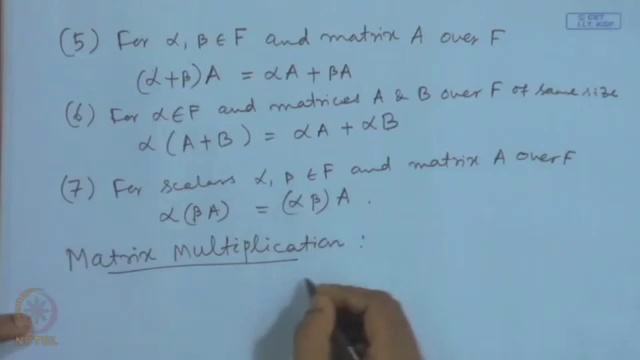 © CET
I.I.T. KGP
(5) For α, β ∈ F and matrix A over F
(α+β)A = αA + βA
(6) For α∈F and matrices A & B over F of same size
α (A+B) = αA + αB
(7) For scalars α, β ∈ F and matrix A over F
α(βA) = (αβ)A .
Matrix Multiplication :
NPTEL